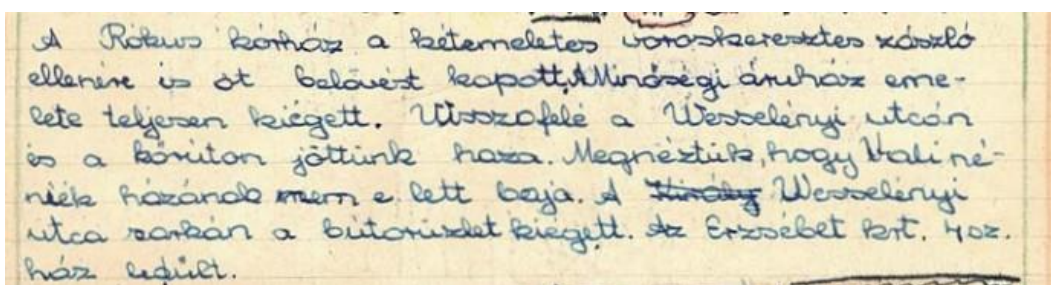 A Rókus kórház a kétemeletes vöröskeresztes zászló
ellenére is öt belövést kapott. A Minőségi áruház eme-
lete teljesen kiégett. Visszafelé a Wesselényi utcán
és a körúton jöttünk haza. Megnéztük, hogy Vali né-
niék házának nem e lett baja. A Király Wesselényi
utca sarkán a bútorüzlet kiégett. Az Erzsébet krt. 40z.
ház ledőlt.